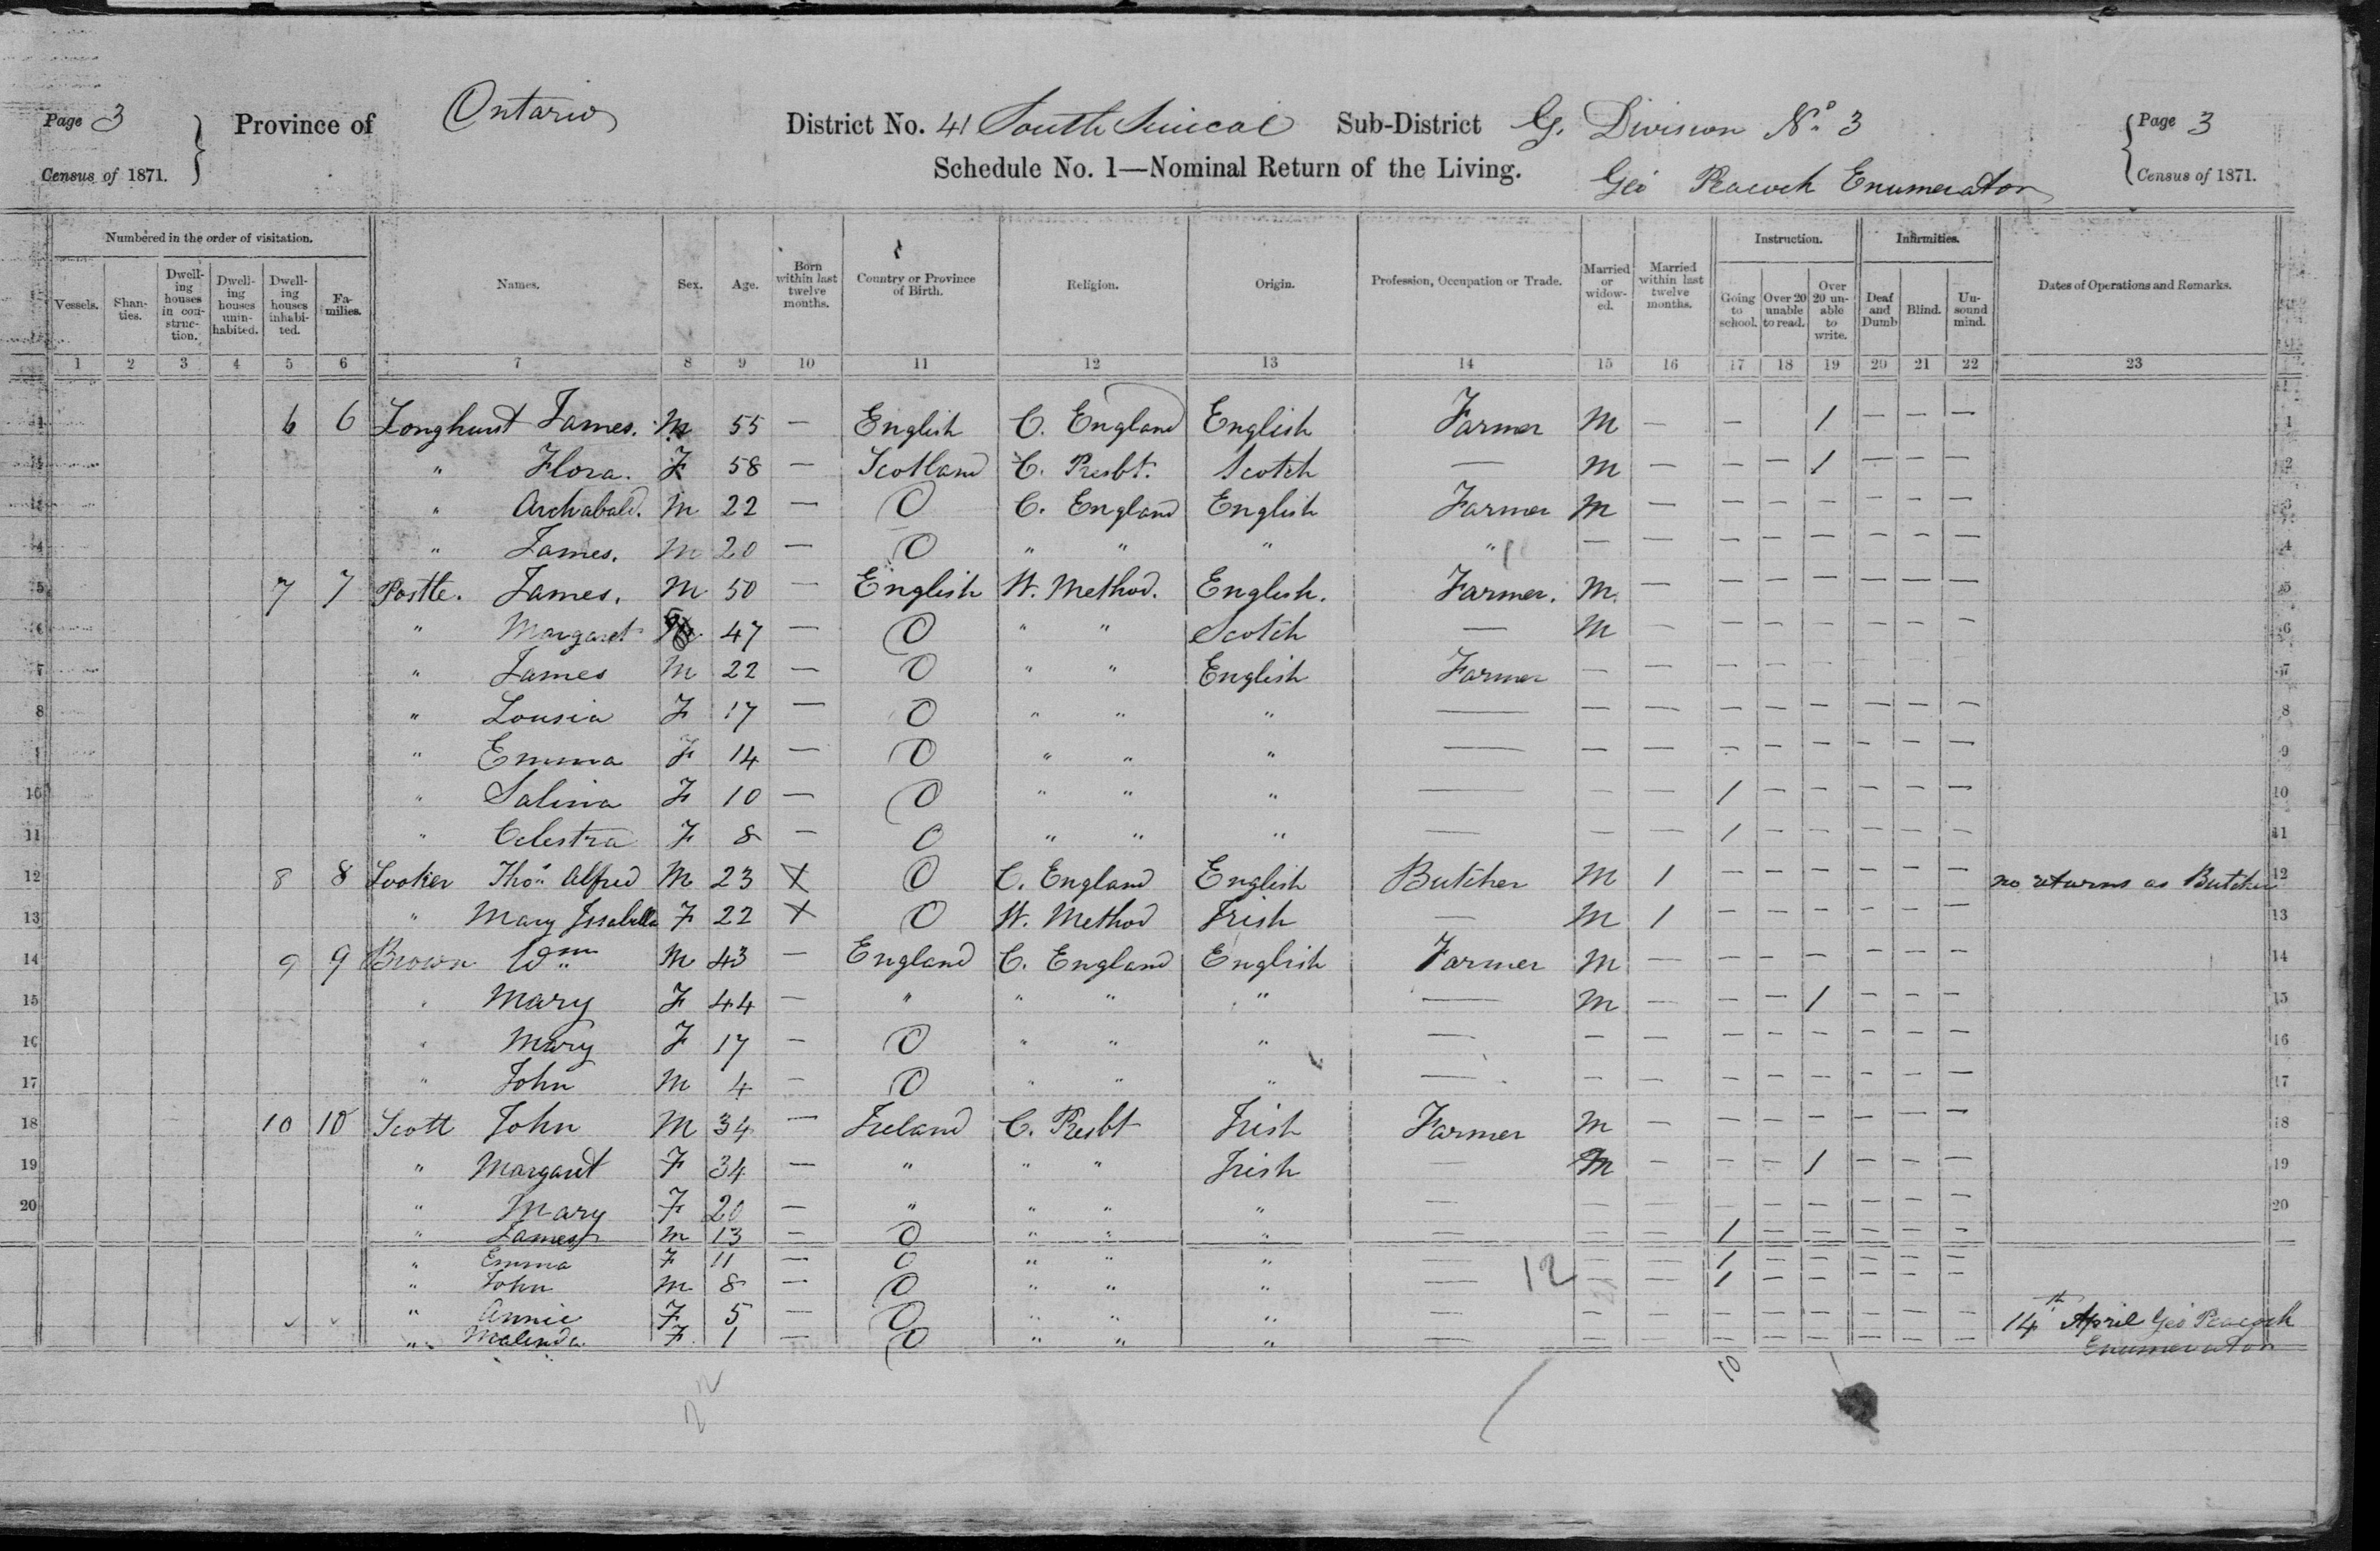 Page 3 Province of Ontario District No. 41 South Simcoe Sub-District G. Division No. 3 Page 3
Census of 1871. Schedule No. 1—Nominal Return of the Living. Geo Peacock Enumerator Census of 1871.
Numbered in the order of visitation. Instruction. Infirmities.
Vessels. Shanties. Dwelling houses in construction. Dwelling houses uninhabited. Dwelling houses inhabited. Families. Names. Sex. Age. Born within last twelve months. Country or Province of Birth. Religion. Origin. Profession, Occupation or Trade. Married or widowed. Married within last twelve months. Going to school. Over 20 unable to read. Over 20 unable to write. Deaf and Dumb Blind. Unsound mind. Dates of Operations and Remarks.
1 2 3 4 5 6 7 8 9 10 11 12 13 14 15 16 17 18 19 20 21 22 23
1 6 6 Longhurst James. M 55 — English C. England English Farmer M — — 1 — — — 1
" Flora. F 58 — Scotland C. Presbt. Scotch — M — — — 1 — — — 2
" Archabald. M 22 — O C. England English Farmer M — — — — — — — 3
4 " James. M 20 — O " " " " — — — — — — — — 4
5 7 7 Postle. James. M 50 — English W. Method. English. Farmer. M. — — — — — — — 5
" Margaret 47 — O " " Scotch — M — — — — — — — 6
7 " James M 22 — O " " English Farmer — — — — — — — — 7
8 " Lousia F 17 — O " " " — — — — — — — — — 8
9 " Emma F 14 — O " " " — — — — — — — — — 9
10 " Salina F 10 — O " " " — — — 1 — — — — — 10
11 " Celestra F 8 — O " " " — — — 1 — — — — — 11
12 8 8 Looker Thos Alfred M 23 X O C. England English Butcher M 1 — — — — — — no returns as Butcher 12
13 " Mary Issabella F 22 X O W. Method Irish — M 1 — — — — — — 13
14 9 9 Brown Wm M 43 — England C. England English Farmer M — — — — — — — 14
15 " Mary F 44 — " " " " — M — — — 1 — — — 15
16 " Mary F 17 — O " " " — — — — — — — — — 16
17 " John M 4 — O " " " — — — — — — — — — 17
18 10 10 Scott John M 34 — Ireland C. Presbt Irish Farmer M — — — — — — — 18
19 " Margaret F 34 — " " " Irish — M — — — 1 — — — 19
20 " Mary F 20 — " " " " — — — — — — — — — 20
" James M 13 — O " " " — — — 1 — — — — —
" Emma F 11 — O " " " — — — 1 — — — — —
" John M 8 — O " " " — 12 — — 1 — — — — —
" Annie F 5 — O " " " — — — — — — — — — 14th April Geo Peacock
" Malinda. F. 1 — O " " " — — — — — — — — — Enumerator
10